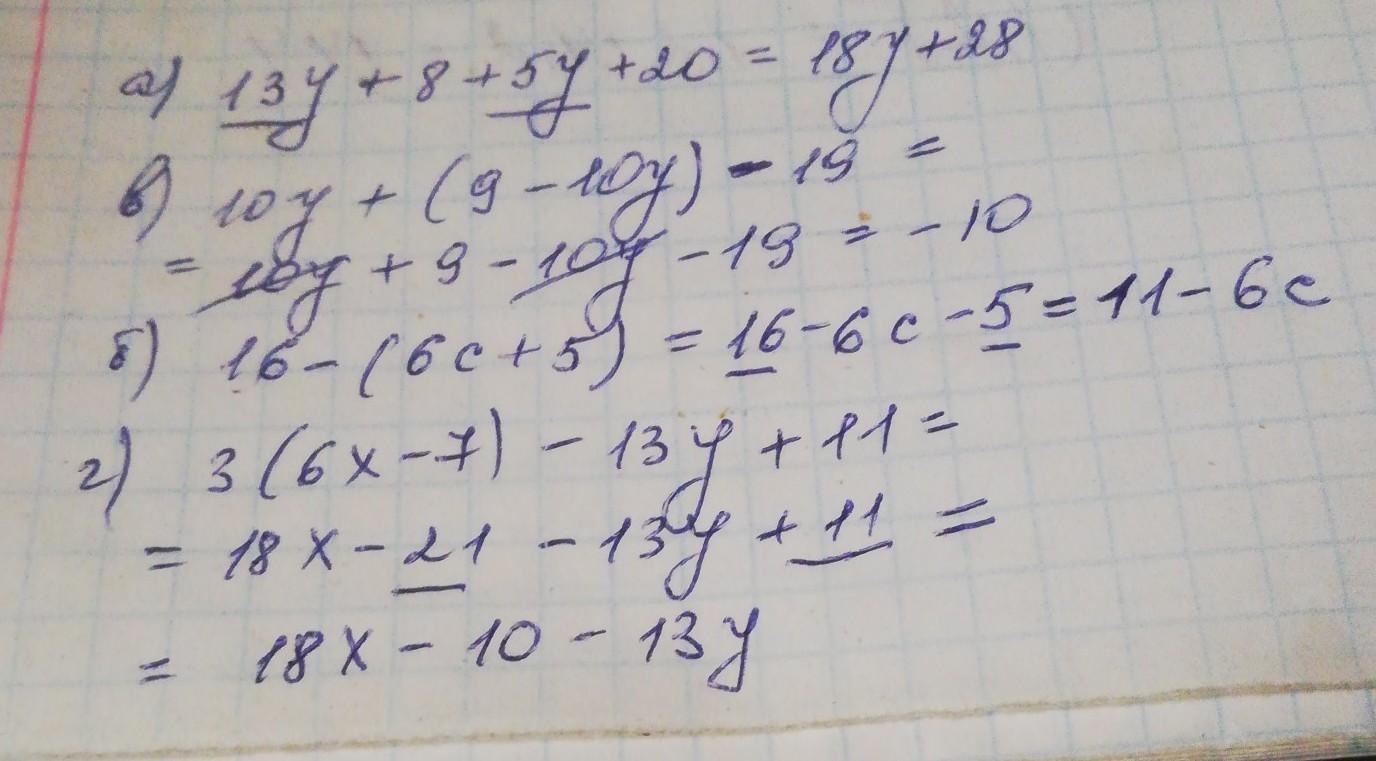 а) 13y + 8 + 5y + 20 = 18y + 28
в) 10y + (9 - 10y) - 19 =
= 10y + 9 - 10y - 19 = - 10
б) 16 - (6c + 5) = 16 - 6c - 5 = 11 - 6c
г) 3(6x - 7) - 13y + 11 =
= 18x - 21 - 13y + 11 =
= 18x - 10 - 13y